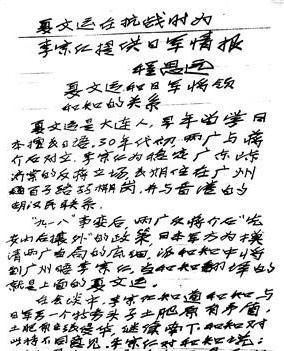 夏文运在抗战时为
李宗仁提供日军情报
程思远
夏文运和日军将领
和知的关系
夏文运是大连人，早年留学日
本擅长日语。30年代初两广与蒋
介石对立，李宗仁为稳定广东
济棠的反蒋立场，长期住在广州
并与香港的
胡汉民联系。
"九一八"事变后，两广反蒋介石"先
安内后攘外"的政策，日本军方为摸
清两广当局的底细，派和知中将
到广州晤李宗仁，当和知翻译的
就是上面的夏文运。
在会谈中，李宗仁知道和知与
日军另一个特务头子土肥原有矛盾，
土肥原主张侵华，和知对
此持不同意见。李宗仁对和知说：